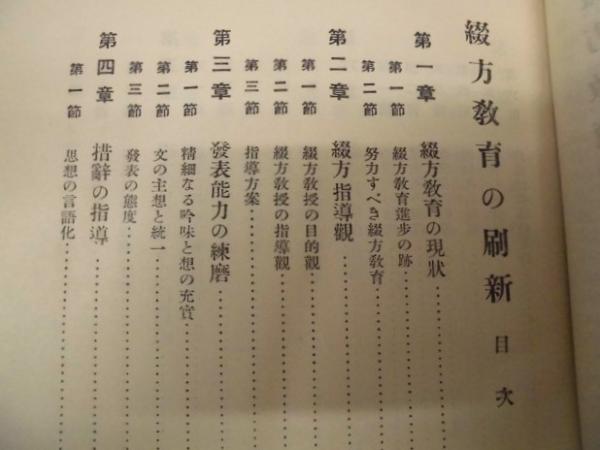 綴方教育の刷新 目次
第一章 綴方教育の現狀
第一節 綴方教育進步の跡
第二節 努力すべき綴方教育
第二章 綴方指導觀
第一節 綴方教授の目的觀
第二節 綴方教授の指導觀
第三節 指導方案
第三章 發表能力の練磨
第一節 精細なる吟味と想の充實
第二節 文の主想と統一
第三節 發表の態度
第四章 措辭の指導
第一節 思想の言語化